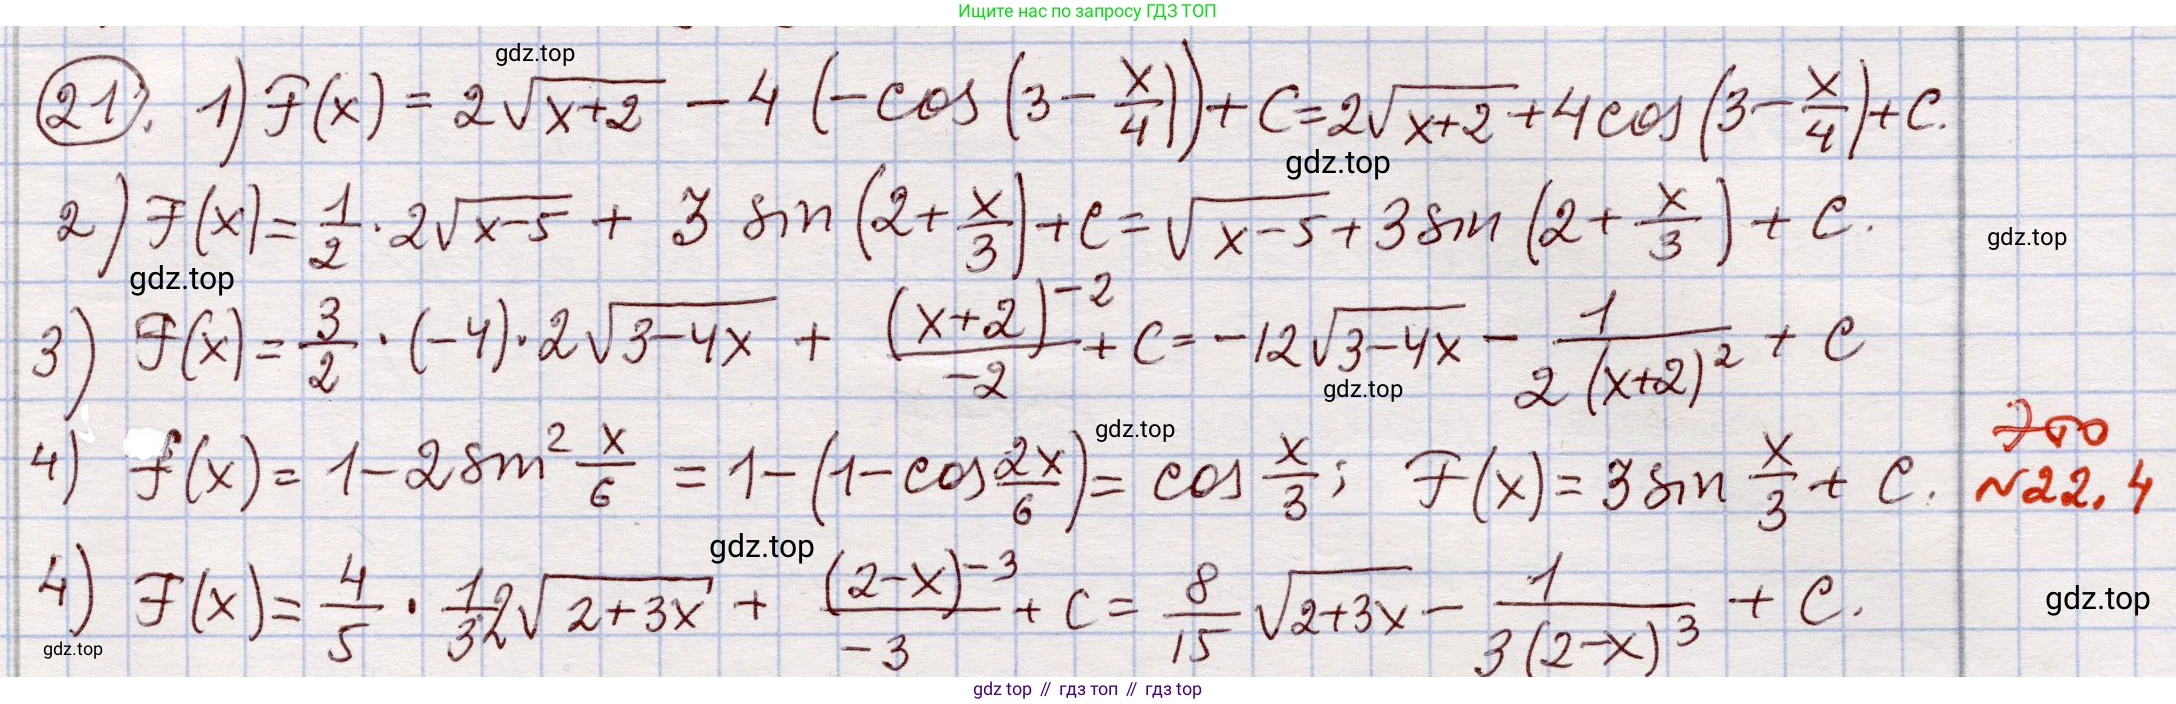 Ищите нас по запросу ГДЗ ТОП
gdz.top
21. 1) F(x) = 2√(x+2) − 4 (−cos(3 − x/4)) + C = 2√(x+2) + 4cos(3 − x/4) + C.
gdz.top
2) F(x) = 1/2 · 2√(x−5) + 3 sin(2 + x/3) + C = √(x−5) + 3 sin(2 + x/3) + C.
gdz.top
gdz.top
3) F(x) = 3/2 · (−4) · 2√(3−4x) + (x+2)^−2/−2 + C = −12√(3−4x) − 1/(2(x+2)^2) + C
gdz.top
gdz.top
4) f(x) = 1 − 2 sin^2 x/6 = 1 − (1 − cos 2x/6) = cos x/3; F(x) = 3 sin x/3 + C. Это №22.4
gdz.top
4) F(x) = 4/5 · 1/3 2√(2+3x) + (2−x)^−3/−3 + C = 8/15 √(2+3x) − 1/(3(2−x)^3) + C.
gdz.top
gdz.top
gdz top // гдз топ // гдз top